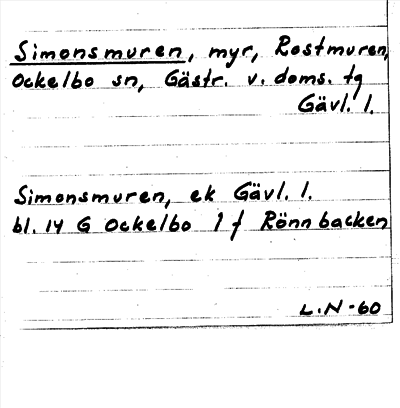 Simonsmuren, myr, Rostmuren,
Ockelbo sn, Gästr. v. doms. tg
Gävl. l.
Simonsmuren, ek Gävl. l.
bl. 14 G Ockelbo 1 f Rönnbacken
L.N-60